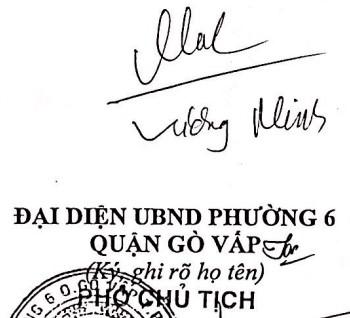 Vương Minh
ĐẠI DIỆN UBND PHƯỜNG 6
QUẬN GÒ VẤP
(Ký, ghi rõ họ tên)
PHÓ CHỦ TỊCH